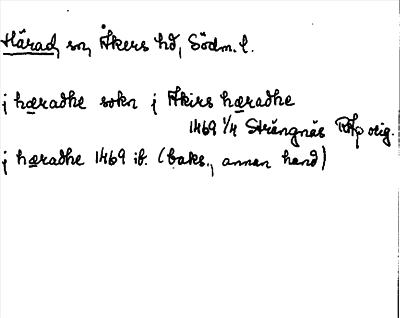 Härad, sn, Åkers hd, Södm. l.
j hæradhe sokn j Akirs hæradhe
1469 1/4 Strängnäs RAp orig.
j hæradhe 1469 ib. (baks., annan hand)